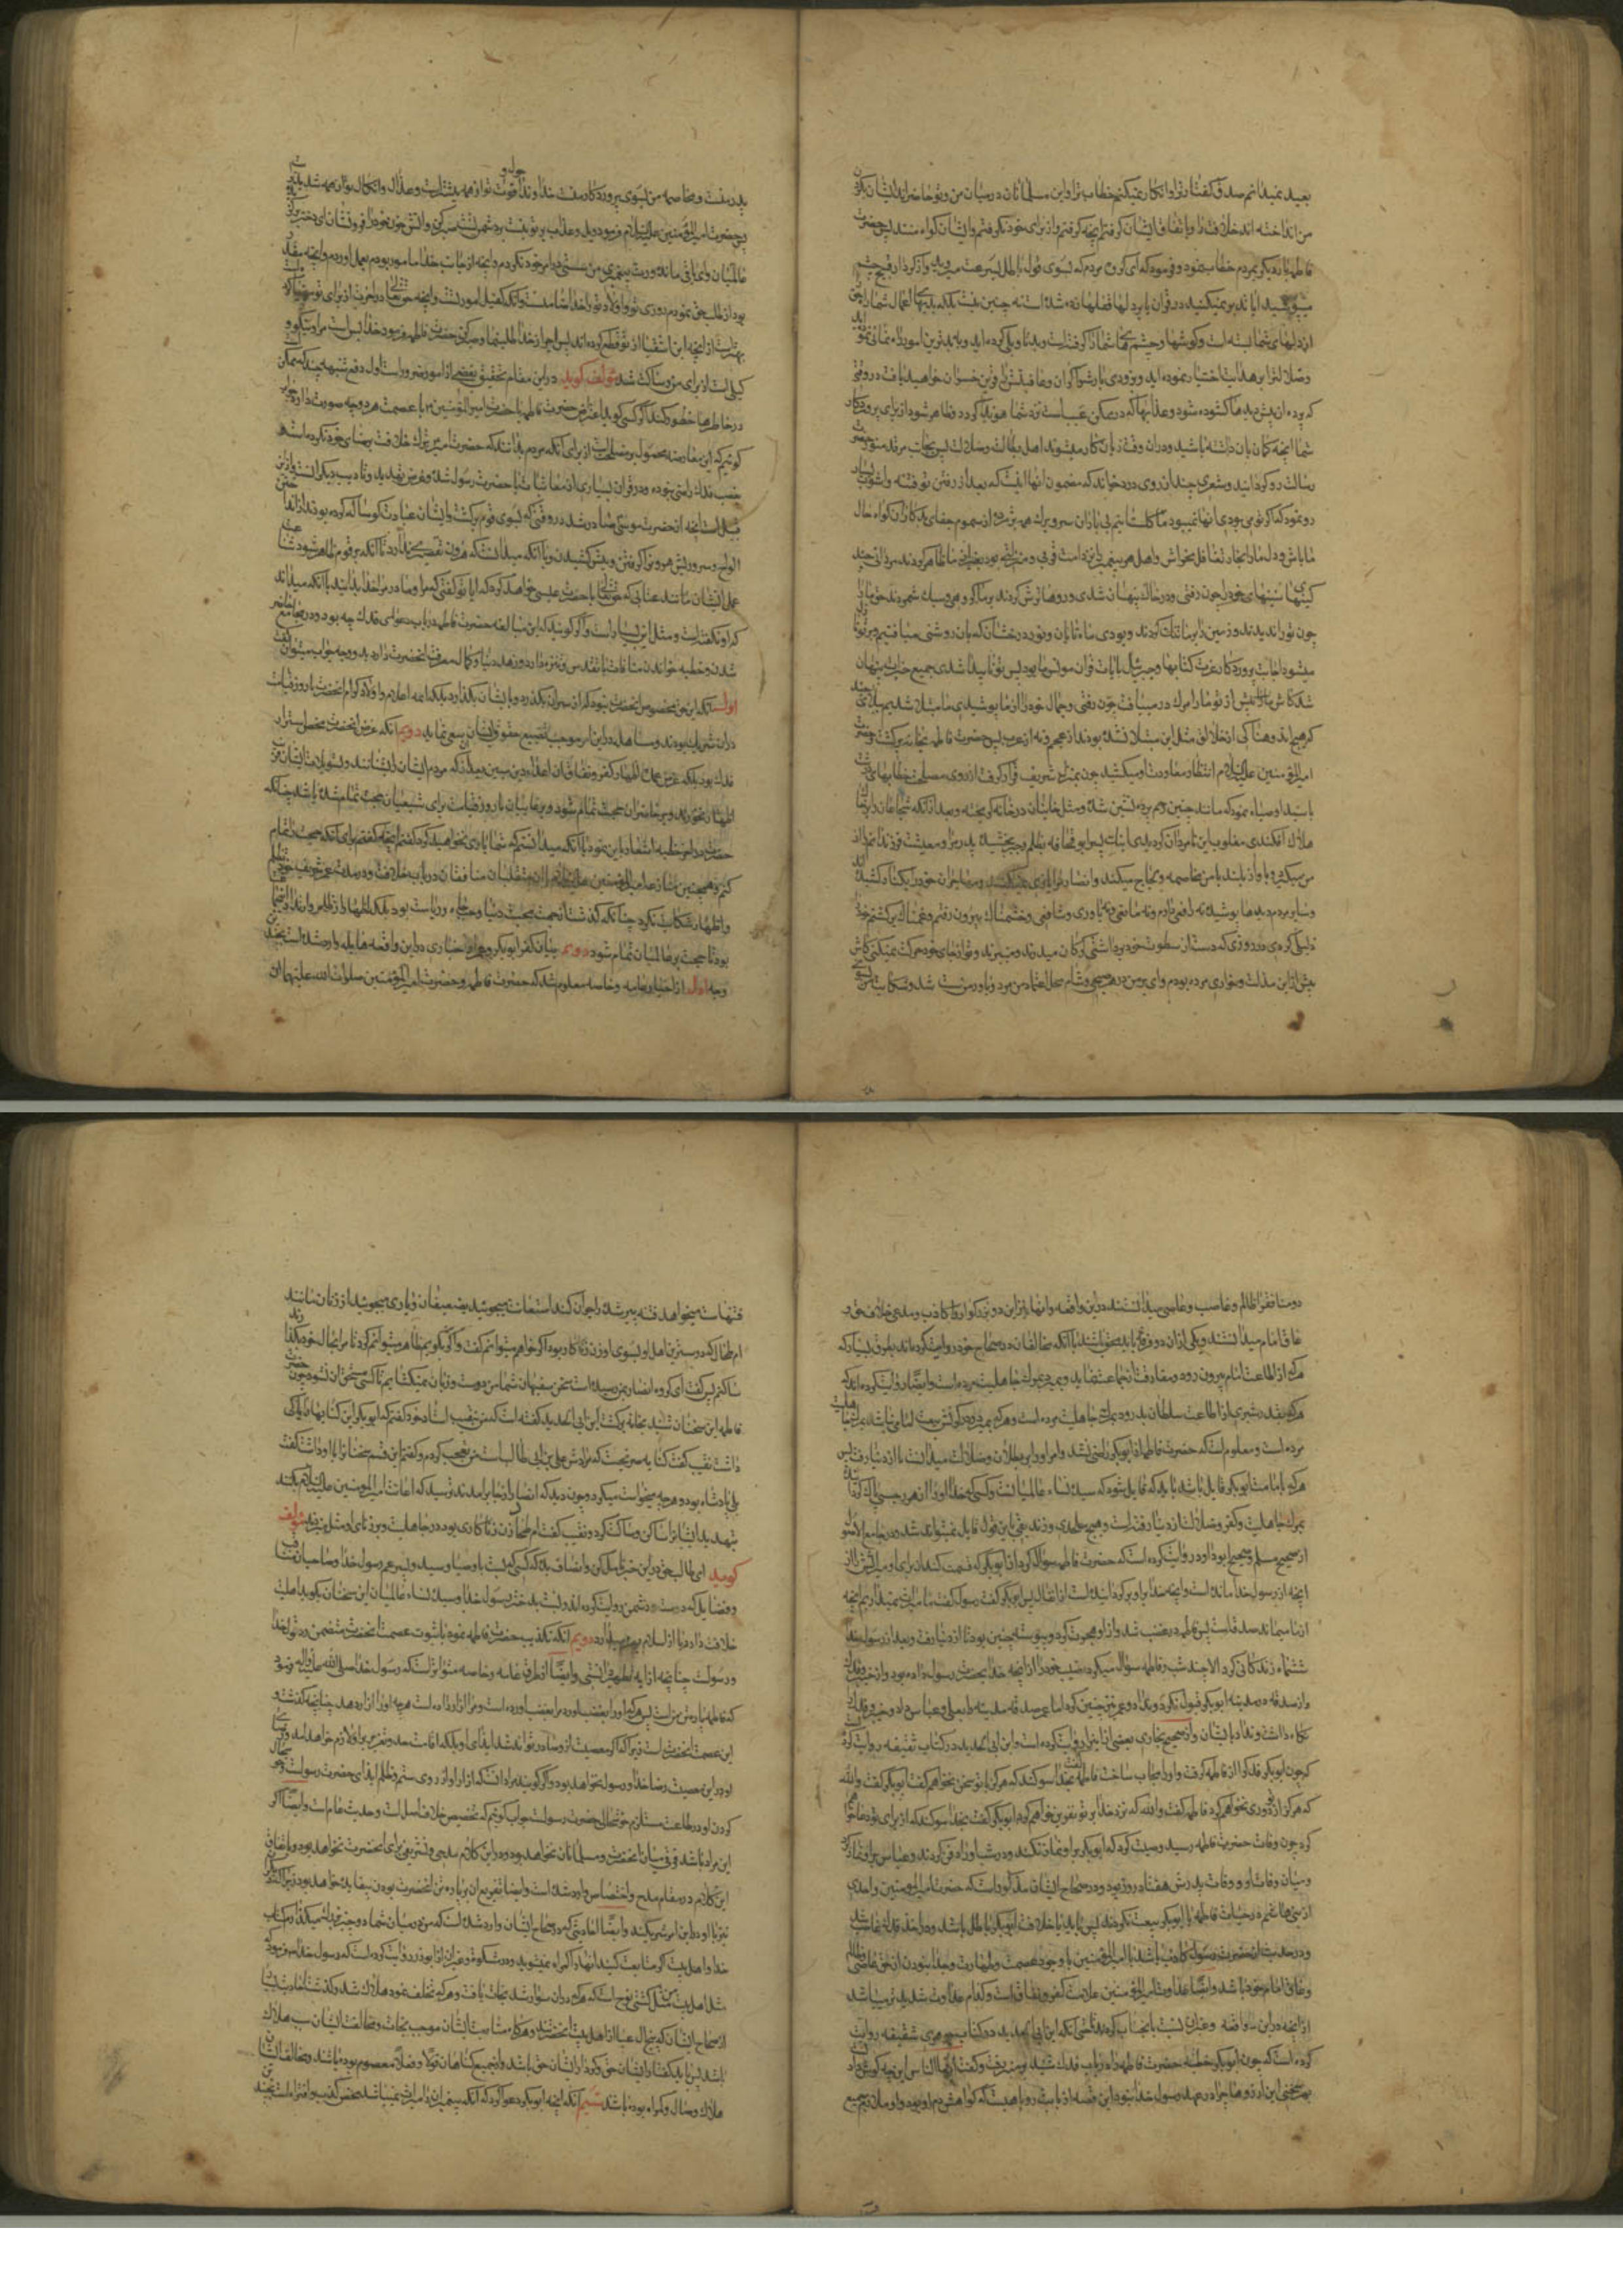 بعید نمیدانم صدق گفتار ترا و انکار نمیکنم خطاب ترا و این مسلمانان در میان من و تو حاضراند ایشان
من انداخته اند خلافت را و باتفاق ایشان گرفتم آنچه گرفتم و از برای خود نگرفتم و ایشان گواه منند پس حضرت
فاطمه بار دیگر بمردم خطاب نمود و فرمود که ای گروه مردم که بسوی قول باطل بسرعت میروید و از کردار قبیح چشم
میپوشید ایا تدبر نمیکنید در قران یا بر دلها قفلها زده شده است نه چنین نیست بلکه بدیهای اعمال شما
از دلهای شما بسته است و گوشها و چشمهای شما را گرفته است و بد تاویلی کرده اید
وضلالت را بر هدایت اختیار نموده اید و بزودی بار شما گران و عاقبتش را قرین خسران خواهید یافت در وقتی
که پرده از پیش دیدها گشوده شود و عذابها که در مکمن غیب است نزد شما هویدا گردد و ظاهر شود از برای شما از پروردگار
شما آنچه گمان بان نداشته باشید و در ان وقت زیان کار میشوند اهل بطالت وضلالت پس بجانب مرقد منور حضرت
رسالت رو گردانید و شعری چند از روی درد خواند که مضمون آنها اینست که بعد از رفتن تو فتنه و آشوب
رو نمود که اگر تو می بودی آنها نمیبود
مرا باش و دل ما را
کینهای سینهای خود را چون رفتی و در خاک پنهان شدی و روها ترش کردند بر ما گروهی و سبک شمردند حق ما را
چون تو را ندیدند و زمین را بر ما تنگ کردند و بودی ماه تابان و نور درخشان که بان روشنی میافتیم و بر تو
میشود از جانب پروردگار عزت کتابها و جبرئیل بایات قران مونس ما بود پس تو ناپیدا شدی جمیع خیرات پنهان
شد کاش پیش از تو ما را مرگ در میبافت چون رفتی و جمال خود را از ما پوشیدی ما مبتلا شدیم ببلائی
که هیچ اندوهناکی از خلایق مثل این مبتلا نشده بودند از عجم و نه از عرب پس حضرت فاطمه بخانه برگشت و حضرت
امیرالمؤمنین علیه السلام انتظار معاودت او میکشید چون بمنزل شریف قرار گرفت از روی مصلحت خطابهای
با سید اوصیاء نمود که مانند جنین در رحم پرده نشین شده و مثل خائنان در خانه گریخته و بعد از آنکه شجاعان
هلاک افکندی مغلوب این نامردان گردیدی اینک پسر ابو قحافه بظلم و جبر بخشیده پدر مرا و معیشت فرزندانم را از
من میگیرد و باواز بلند با من مخاصمه و لجاج میکند و انصار مرا یاری نمیکنند و مهاجران خود را بکنار کشیده
وسایر مردم دیدها پوشیده نه دافعی دارم و نه مانعی و نه یاوری و شافعی و خشمناک بیرون رفتم و غمناک برگشتم خود
ذلیل کردی در روزی که دست از سطوت خود برداشتی گرگان میدرند و میبرند و تو از جای خود حرکت نمیکنی کاش
پیش از این مذلت و خواری مرده بودم وای بر من در هر صبحی و شامی محل اعتماد من مرد و یاور من سست شد و شکایت من بسوی
پدر منست و مخاصمه من بسوی پروردگار منست خداوندا قوت تو از همه بیشتر است و عذاب و نکال تو از همه شدیدتر
پس حضرت امیرالمؤمنین علیه السلام فرمود ویل و عذاب بر تو نیست بر دشمن تست صبر کن و آتش حزن خود را فرو نشان ای دختر برگزیده
عالمیان و ای باقی مانده ذریت پیغمبری من سستی در امر خود نکردم و آنچه از جانب خدا مامور بودم بعمل آوردم و آنچه مقدور
بود از طلب حق نمودم روزی تو و اولاد تو را خدا ضامنست و آنکه کفیل امور تست و آنچه حق تعالی در آخرت از برای تو مهیا کرده
بهتر است از آنچه این اشقیا از تو قطع کرده اند پس اجر از خدا طلب نما و صبر کن حضرت فاطمه فرمود خدا بس است مرا و نیکو و
کیلی است از برای من و ساکت شد مؤلف گوید در این مقام تحقیق بعضی از امور ضرور است اول دفع شبهه چند که ممکن
در خاطرها خطور کند اگر کسی گوید اعتراض حضرت فاطمه با حضرت امیرالمؤمنین با عصمت هر دو چه صورت دارد جواب
گوئیم که این معارضه محمول بر مصلحت است از برای آنکه مردم بدانند که حضرت امیر ترک خلافت برضای خود نکرده است
غصب فدک راضی نبوده و در قران بسیاری از معاتبات با حضرت رسول شده و غرض تهدید و تادیب دیگران است
قبیل است آنچه از حضرت موسی صادر شد در وقتی که بسوی قوم برگشت و ایشان عبادت گوساله کرده بودند از انداختن
الواح و سر و ریش هرون را گرفتن و پیش کشیدن و با آنکه میدانست که هرون تقصیر ندارد تا آنکه بر قوم ظاهر شود شناعت
عمل ایشان مانند عتابی که حق تعالی با حضرت عیسی خواهد کرد که ایا تو گفتی که مرا و مادر مرا خدا بدانید با آنکه میداند
که او نگفته است و مثل این بسیار است و اگر گویند که این مبالغه حضرت فاطمه در باب دعوای فدک چه بود و در مجامع
شدن و خطبه خواندن منافات با تقدس و تنزه دارد و زهد دنیا و کمال معرفت آنحضرت دارد بدو وجه جواب میتوان
اول آنکه این حق مخصوص آنحضرت نبود که از سر آن بگذرد و با ایشان بگذارد بلکه ائمه اعلام و اولاد کرام آنحضرت تا روز قیامت
در ان شریک بودند و مساهله در این امر موجب تضییع حقوق ایشان میشد دویم آنکه غرض آنحضرت محض استرداد
فدک نبود بلکه غرض اظهار کفر و نفاق ان اعداء دین مبین بود
اظهار نخورند و بر حاضران حجت تمام شود و بر غایبان تا روز قیامت برای شیعیان حجت تمام شده باشد چنانکه
حضرت در اخر خطبه اشعار باین نمود با آنکه میدانستم که شما یاری نخواهید کرد گفتم آنچه گفتم برای آنکه حجت را تمام
کنم و همچنین منازعه امیرالمؤمنین علیه السلام با متقلبان منافقان در باب خلافت و در مدت عمر شریف خود تظلم
و اظهار شکایت نکرد چنانکه گذشت از جهت محبت دنیا و حب جاه و ریاست نبود بلکه اظهار ظلم و
بود تا حجت بر عالمیان تمام شود دویم بیان کفر ابوبکر و هواداران وی در این واقعه هایله وارد شده است بچند
وجه اول از اخبار عامه و خاصه معلوم شد که حضرت فاطمه و حضرت امیرالمؤمنین صلوات الله علیهما ان
دو منافق را ظالم و غاصب و عاصی میدانستند در این واقعه و آنها نیز این دو بزرگوار را کاذب و مدعی خلاف حق و
عاق امام میدانستند و یکی از ان دو فرقه باید بر حق باشند با آنکه مخالفان در صحاح خود روایت کرده اند بطرق بسیار که
هرکه از اطاعت امام بیرون رود و مفارقت جماعت نماید و بمیرد بمرگ جاهلیت مرده است و ایضا روایت کرده اند که
هرکه بقدر شبری از اطاعت سلطان بدر رود بمرگ جاهلیت مرده است و هرکه بمیرد و در گردنش بیعت امامی نباشد بمرگ
مرده است و معلوم است که حضرت فاطمه از ابوبکر راضی نشد و او را بر بطلان و ضلالت میدانست تا از دنیا رفت پس
هرکه بامامت ابوبکر قایل باشد باید که قایل شود که سیده نساء عالمیان و کسی که خدا او را از هر رجسی پاک کرده
بمرگ جاهلیت و کفر و ضلالت از دنیا رفته است و هیچ ملحدی و زندیقی باین قول قایل نمیتواند شد و در جامع الاصول
از صحیح مسلم و صحیح ابوداود روایت کرده است که حضرت فاطمه سؤال کرد از ابوبکر که قسمت کند از برای او میراثش را از
آنچه از رسول خدا مانده است و آنچه خدا بر او برگردانیده است از انفال پس ابوبکر گفت رسول گفت ما میراث نمیگذاریم آنچه
از ما بماند صدقه است پس فاطمه در غضب شد و از او هجرت کرد و پیوسته چنین بود تا از دنیا رفت و بعد از رسول خدا
ششماه زندگانی کرد الا چند شب و فاطمه سؤال میکرد نصیب خود را از آنچه خدا بحضرت رسول داده بود و از خیبر و فدک
و از صدقه در مدینه ابوبکر قبول نکرد و نداد و عمر نیز چنین کرد اما صدقه مدینه را بعلی و عباس داد و خیبر و فدک
نگاه داشت و نداد بایشان و از صحیح بخاری بعضی از اینرا روایت کرده است و ابن ابی الحدید در کتاب سقیفه روایت کرده
که چون ابوبکر فدک را از فاطمه گرفت و او را جواب ساخت فاطمه گفت بخدا سوگند که هرگز با تو سخن نخواهم گفت ابوبکر گفت والله
که هرگز از تو دوری نخواهم کرد فاطمه گفت والله که نزد خدا بر تو نفرین خواهم کرد ابوبکر گفت بخدا سوگند که از برای تو دعا خواهم
کرد چون وفات حضرت فاطمه رسید وصیت کرد که ابوبکر بر او نماز نکند و در شب او را دفن کردند و عباس بر او نماز کرد
و میان وفات او و وفات پدرش هفتاد و دو روز بود و در صحاح ایشان مذکور است که حضرت امیرالمؤمنین و احدی
از بنی هاشم در حیات فاطمه با ابوبکر بیعت نکردند پس باید یا خلافت ابوبکر باطل باشد و در اخذ فدک غاصب باشد
و در حدیث از حضرت رسول کاذب باشد یا امیرالمؤمنین با وجود عصمت و طهارت و جدا نبودن از حق عاصی
و عاق امام خود باشد و ایضا عداوت امیرالمؤمنین علامت کفر و نفاق است و کدام عداوت شدیدتر میباشد
از آنچه در این واقعه و غیر ان نسبت بانجناب کردند حتی آنکه ابن ابی الحدید در کتاب جوهری سقیفه روایت
کرده است که چون ابوبکر خطبه حضرت فاطمه را در باب فدک شنید بر منبر رفت و گفت ایها الناس این چه گوش دادن
بهر سخنی این ارزوها چرا در عهد رسول خدا نبود این قصه از بابت روباهیست که گواهش دم او بود و او ملازم جمیع
فتنهاست میخواهد فتنه پیر شده را جوان کند استعانت میجویند بضعیفان و یاری میجویند از زنان مانند
ام طحال که دوستترین اهل او بسوی او زن زناکار بود اگر خواهم میتوانم گفت و اگر بگویم ظاهر میتوانم کرد تا مرا بحال خود گذارند
ساکتم پس گفت ای گروه انصار بمن رسیده است سخن سفیهان شما من دست و زبان نمیگشایم تا کسی مستحق ان نشود چون حضرت
فاطمه این سخنان شنید بخانه برگشت ابن ابی الحدید گفته است که من بنقیب استاد خود گفتم که ابوبکر این کنایها را با کی
داشت نقیب گفت کنایه نیست صریح است که مرادش علی بن ابی طالب است من تعجب کردم و گفتم این قسم سخنان را با او داشت گفت
بلی پادشاه بود و هرچه میخواست میکرد و چون دید که انصار از جا برآمدند ترسید که اعانت امیرالمؤمنین علیه السلام بکنند
بتهدید ایشانرا ساکن و ساکت کرد و نقیب گفت ام طحال زن زناکاری بود در جاهلیت و بر زنای او مثل میزدند مؤلف
گوید ای طالب حق در این خبر تامل کن و انصاف بده که کسی که نسبت با وصیاء سید و پسر عم رسول خدا و صاحب
و فضایل که دوست و دشمن روایت کرده اند و نسبت بدختر رسول خدا و سیده نساء عالمیان این سخنان بگوید اهلیت
خلافت دارد یا از اسلام بهره دارد دویم آنکه تکذیب حضرت فاطمه نمود با ثبوت عصمت آنحضرت متضمن رد قول خدا
و رسولست چنانچه از ایه تطهیر دانستی و ایضا از طرق عامه و خاصه متواتر است که رسول خدا صلی الله علیه و آله فرمود
که فاطمه پاره تن من است پس هرکه او را بغضب آورد مرا بغضب آورده است و مرا آزار داده است هرچه او را آزار دهد چنانچه گذشت و
این عصمت آنحضرت است زیرا که اگر معصیت از او صادر تواند شد ایذای او بلکه اقامت حد و تعزیر بر او لازم خواهد آمد و رضای
او در این معصیت رضای خدا و رسول نخواهد بود و اگر گویند مراد آنست که آزار او از روی ستم و ظلم ایذای حضرت رسولست و خوشحال
کردن او در طاعت مستلزم خوشحالی حضرت رسولست جواب گوئیم که تخصیص خلاف اصل است و حدیث عام است و ایضا اگر
این مراد باشد فرقی میان آنحضرت و مسلمانان نخواهد بود و در این کلام مدحی و تشریفی برای آنحضرت نخواهد بود و باتفاق
این کلام در مقام مدح و اختصاص وارد شده است و ایضا تفریع ان بر پاره تن آنحضرت بودن بیفایده خواهد بود
نیز با او در این امر شریکند و ایضا احادیثی که در صحاح ایشان وارد شده است که من در میان شما دو چیز بزرگ میگذارم کتاب
خدا و اهل بیت اگر متابعت کنید آنها را گمراه نمیشوید و در مشکوة و غیر ان از ابوذر روایت کرده است که رسول خدا فرمود که
مثل اهل بیت من مثل کشتی نوح است که هرکه در ان سوار شد نجات یافت و هرکه تخلف نمود هلاک شد و گذشت احادیث بسیار
از صحاح ایشان که بیحال عبا از اهل بیت آنحضرتند و هرگاه متابعت ایشان موجب نجات و مخالفت ایشان سبب هلاک
باشد پس باید گفتار ایشان حق و کردار ایشان حق باشد و از جمیع گناهان قولا و فعلا معصوم بوده باشند و مخالفت ایشان
هلاک و ضال و گمراه بوده باشد سیم آنکه آنچه ابوبکر دعوا کرد که آنکه پیغمبران را میراث نمیباشد محض کذب و افترا است بچند